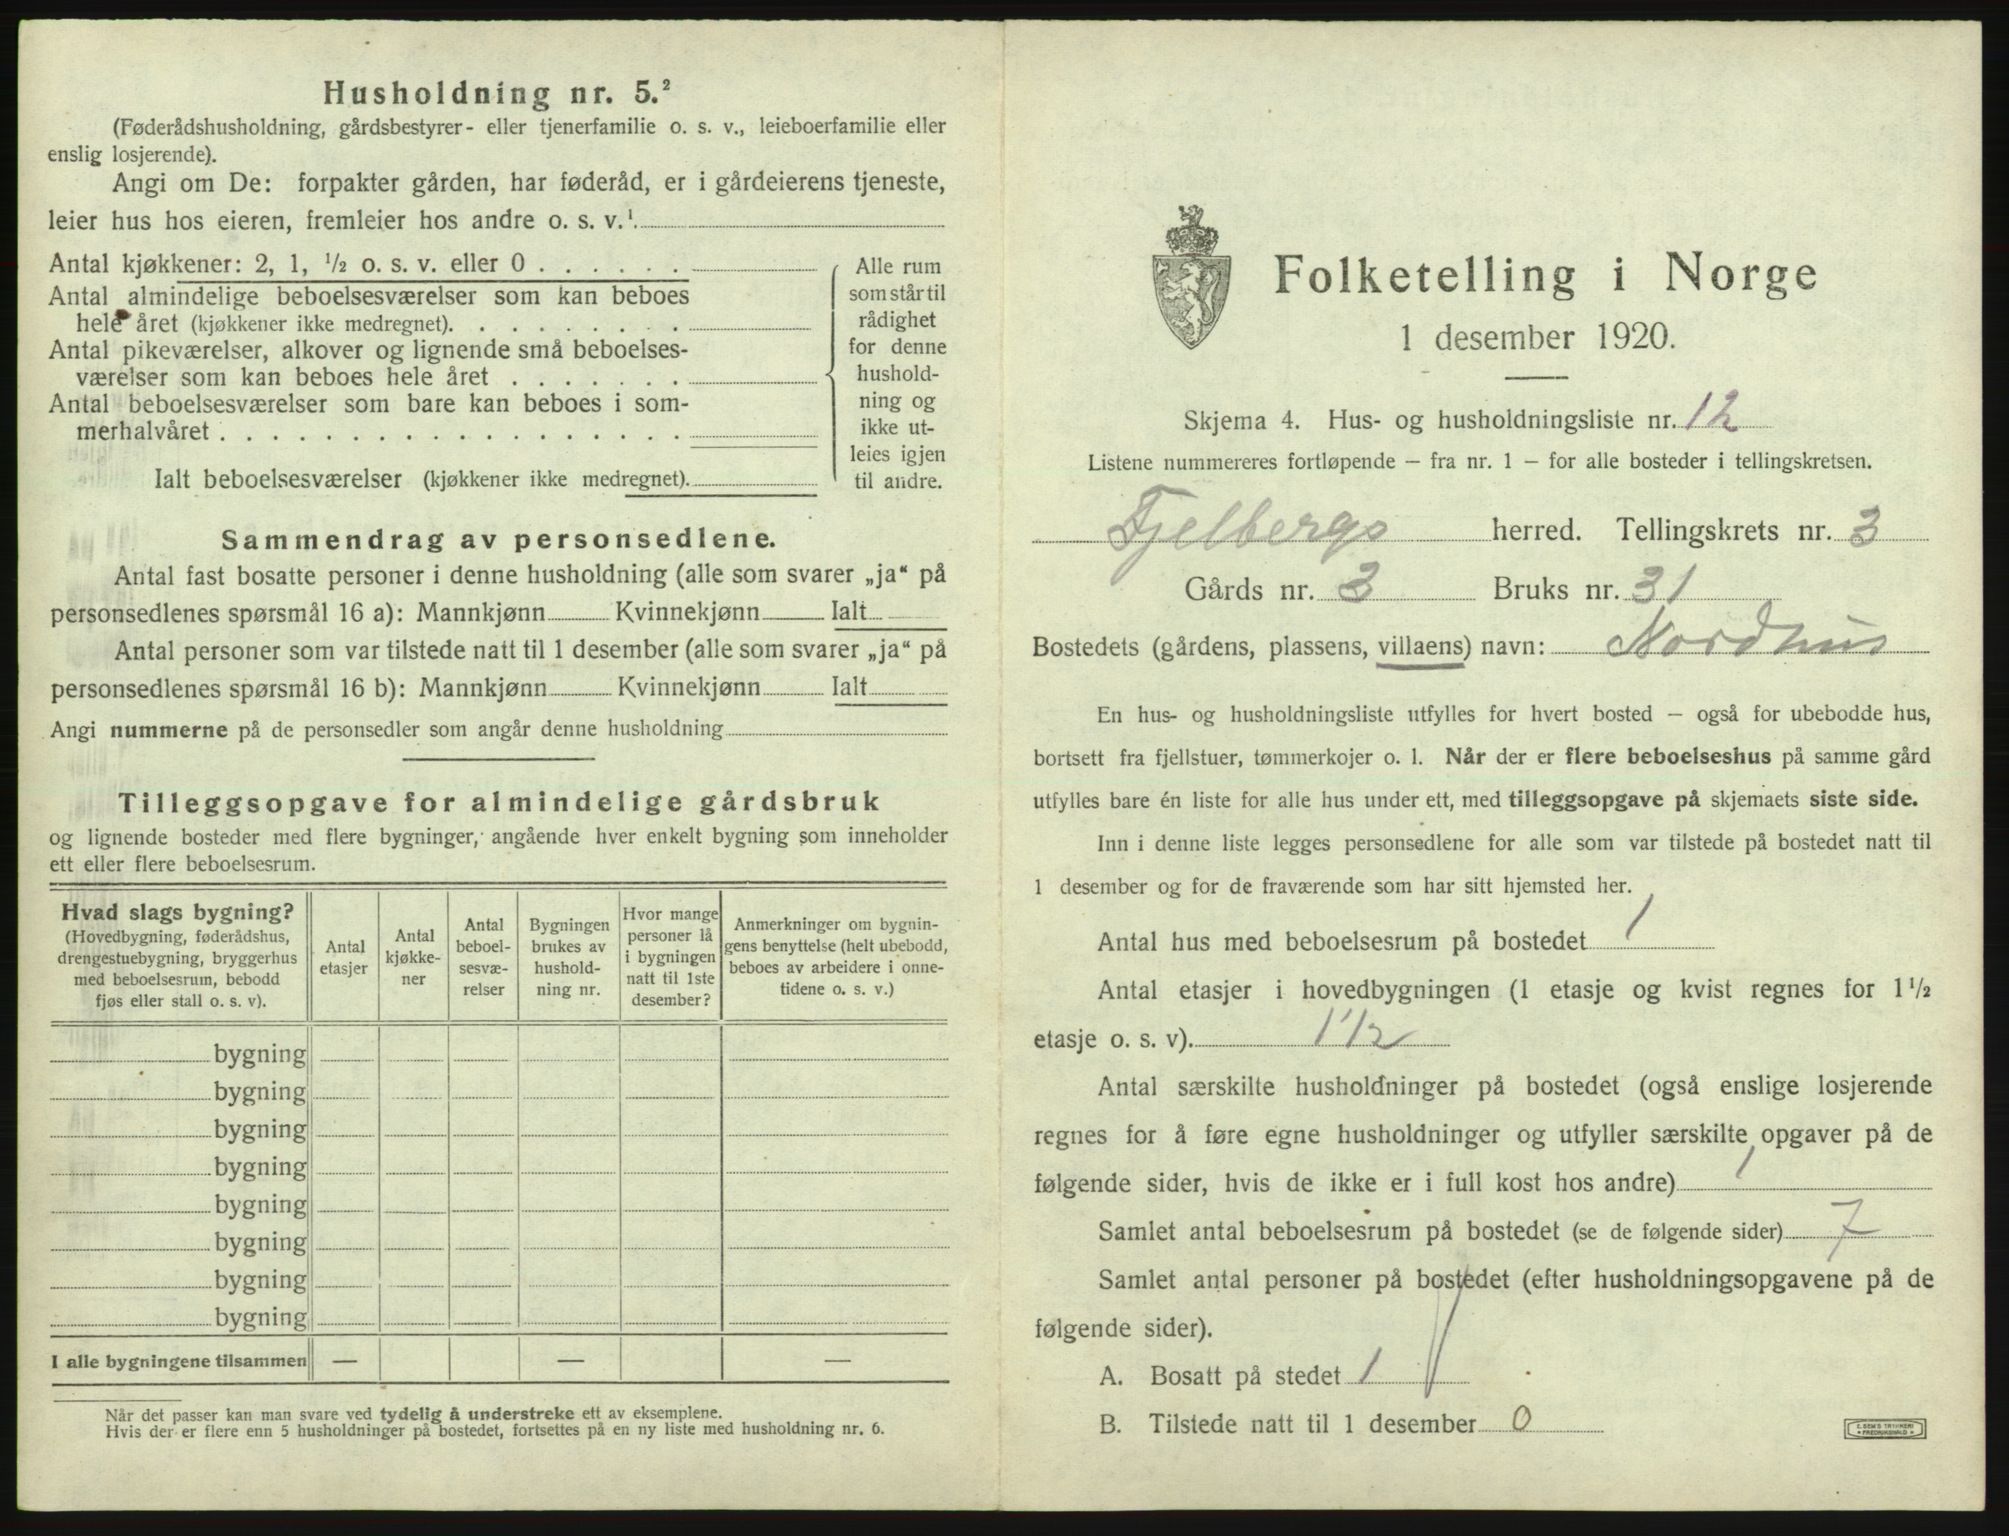 Husholdning nr. 5.²
(Føderådshusholdning, gårdsbestyrer- eller tjenerfamilie o. s. v., leieboerfamilie eller
enslig losjerende).
Angi om De: forpakter gården, har føderåd, er i gårdeierens tjeneste,
leier hus hos eieren, fremleier hos andre o. s. v.¹
Antal kjøkkener: 2, 1, ½ o. s. v. eller 0 . . . . . .
Antal almindelige beboelsesværelser som kan beboes
hele året (kjøkkener ikke medregnet). . . . . . . . .
Antal pikeværelser, alkover og lignende små beboelses-
værelser som kan beboes hele året . . . . . . .
Antal beboelsesværelser som bare kan beboes i som-
merhalvåret . . . . . . . . . . . . . . . . . .
Ialt beboelsesværelser (kjøkkener ikke medregnet).
Alle rum
som står til
rådighet
for denne
hushold-
ning og
ikke ut-
leies igjen
til andre.
Sammendrag av personsedlene.
Antal fast bosatte personer i denne husholdning (alle som svarer „ja“ på
personsedlenes spørsmål 16 a): Mannkjønn Kvinnekjønn Ialt
Antal personer som var tilstede natt til 1 desember (alle som svarer „ja“ på
personsedlenes spørsmål 16 b): Mannkjønn Kvinnekjønn Ialt
Angi nummerne på de personsedler som angår denne husholdning
Tilleggsopgave for almindelige gårdsbruk
og lignende bosteder med flere bygninger, angående hver enkelt bygning som inneholder
ett eller flere beboelsesrum.
Hvad slags bygning?
(Hovedbygning, føderådshus,
drengestuebygning, bryggerhus
med beboelsesrum, bebodd
fjøs eller stall o. s. v).
Antal
etasjer
Antal
kjøkke-
ner
Antal
beboel-
sesvæ-
relser
Bygningen
brukes av
hushold-
ning nr.
Hvor mange
personer lå
i bygningen
natt til 1ste
desember?
Anmerkninger om bygnin-
gens benyttelse (helt ubebodd,
beboes av arbeidere i onne-
tidene o. s. v.)
bygning
bygning
bygning
bygning
bygning
bygning
bygning
bygning
I alle bygningene tilsammen — — —
Når det passer kan man svare ved tydelig å understreke ett av eksemplene.
Hvis der er flere enn 5 husholdninger på bostedet, fortsettes på en ny liste med husholdning nr. 6.
Folketelling i Norge
1 desember 1920.
Skjema 4. Hus- og husholdningsliste nr. 12
Listene nummereres fortløpende – fra nr. 1 – for alle bosteder i tellingskretsen.
Fjelbergs herred. Tellingskrets nr. 3
Gårds nr. 3 Bruks nr. 31
Bostedets (gårdens, plassens, villaens) navn: Nordhus
En hus- og husholdningsliste utfylles for hvert bosted – også for ubebodde hus,
bortsett fra fjellstuer, tømmerkojer o. l. Når der er flere beboelseshus på samme gård
utfylles bare én liste for alle hus under ett, med tilleggsopgave på skjemaets siste side.
Inn i denne liste legges personsedlene for alle som var tilstede på bostedet natt til
1 desember og for de fraværende som har sitt hjemsted her.
Antal hus med beboelsesrum på bostedet 1
Antal etasjer i hovedbygningen (1 etasje og kvist regnes for 1½
etasje o. s. v). 1½
Antal særskilte husholdninger på bostedet (også enslige losjerende
regnes for å føre egne husholdninger og utfyller særskilte opgaver på de
følgende sider, hvis de ikke er i full kost hos andre) 1
Samlet antal beboelsesrum på bostedet (se de følgende sider) 7
Samlet antal personer på bostedet (efter husholdningsopgavene på de
følgende sider).
A. Bosatt på stedet 1
B. Tilstede natt til 1 desember 0
E. SEM'S TRYKKERI
FREDRIKSHALD